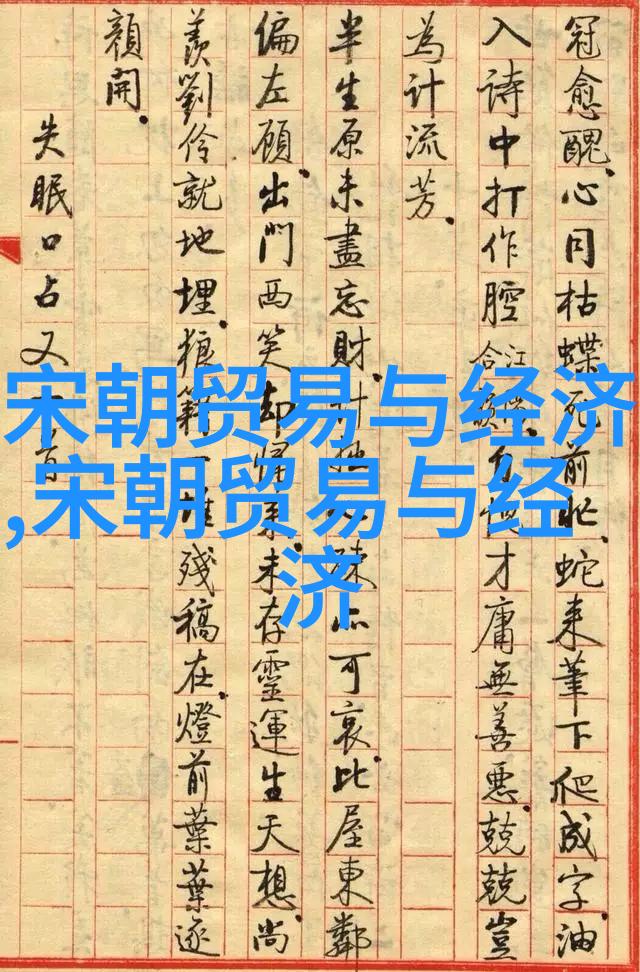 冠愈醜。心同枯蝶死前忙、蛇来筆下爬成字。油
入诗中打作腔江合才庸無善惡、兢兢豈
為計流芳。
半生原未盡忘財。可哀。比屋東鄰
偏左顧、出門西笑却歸未存靈運生天想、尚
羡劉伶就地埋。狼籍一堆殘稿在、燈前葉葉逐
顏開。
失眠口占又
宋朝贸易与经济
,宋朝贸易与经
济